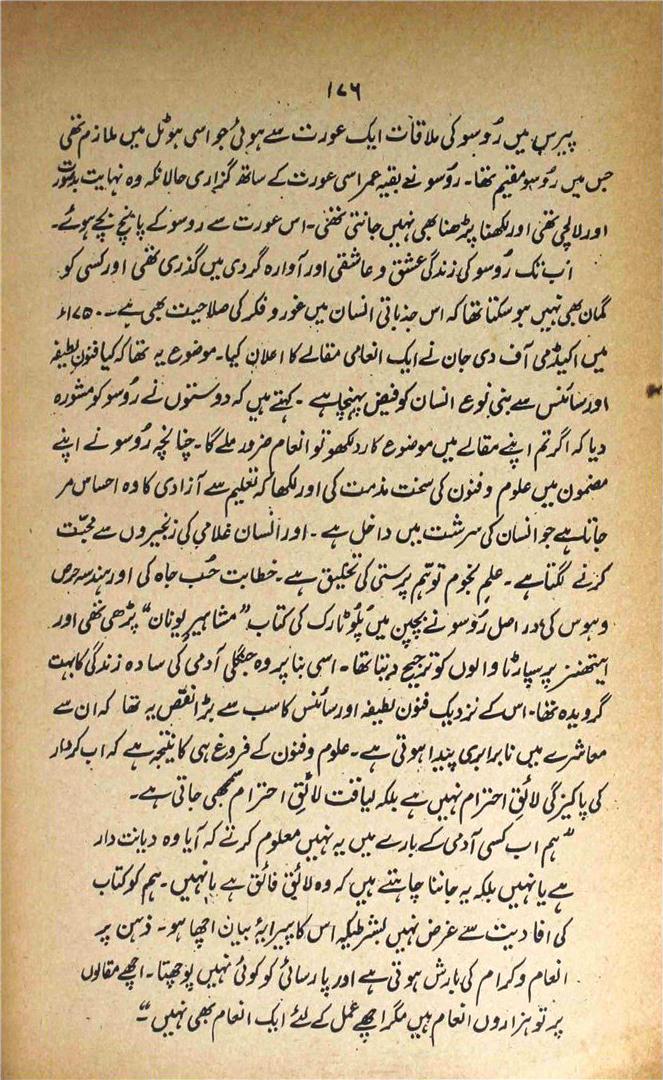 ۱۷۶
پیرس میں رُوسو کی ملاقات ایک عورت سے ہوئی جو اسی ہوٹل میں ملازم تھی
جس میں رُوسو مقیم تھا۔ روسو نے بقیہ عمر اسی عورت کے ساتھ گزاری حالانکہ وہ نہایت بدصورت
اور لالچی تھی اور لکھنا پڑھنا بھی نہیں جانتی تھی۔ اس عورت سے روسو کے پانچ بچے ہوئے۔
اب تک رُوسو کی زندگی عشق و عاشقی اور آوارہ گردی میں گذری تھی اور کسی کو
گمان بھی نہیں ہو سکتا تھا کہ اس جذباتی انسان میں غور و فکر کی صلاحیت بھی ہے۔ ۱۷۵۰ء
میں اکیڈمی آف دی جان نے ایک انعامی مقالے کا اعلان کیا۔ موضوع یہ تھا کہ کیا فنون لطیفہ
اور سائنس سے بنی نوع انسان کو فیض پہنچا ہے۔ کہتے ہیں کہ دوستوں نے رُوسو کو مشورہ
دیا کہ اگر تم اپنے مقالے میں موضوع کا رد لکھو تو انعام ضرور ملے گا۔ چنانچہ رُوسو نے اپنے
مضمون میں علوم و فنون کی سخت مذمت کی اور لکھا کہ تعلیم سے آزادی کا وہ احساس مر
جاتا ہے جو انسان کی سرشت میں داخل ہے۔ اور انسان غلامی کی زنجیروں سے محبّت
کرنے لگتا ہے۔ علم نجوم توہّم پرستی کی تخلیق ہے۔ خطابت حُب جاہ کی اور ہندسہ حرص
و ہوس کی، در اصل رُوسو نے بچپن میں پُلوٹارک کی کتاب ”مشاہیر یونان“ پڑھی تھی اور
ایتھنز پر سپارٹا والوں کو ترجیح دیتا تھا۔ اسی بنا پر وہ جنگلی آدمی کی سادہ زندگی کا بہت
گرویدہ تھا۔ اس کے نزدیک فنون لطیفہ اور سائنس کا سب سے بڑا نقص یہ تھا کہ ان سے
معاشرے میں نابرابری پیدا ہوتی ہے۔ علوم و فنون کے فروغ ہی کا نتیجہ ہے کہ اب کردار
کی پاکیزگی لائقِ احترام نہیں ہے بلکہ لیاقت لائقِ احترام سمجھی جاتی ہے۔
”ہم اب کسی آدمی کے بارے میں یہ نہیں معلوم کرتے کہ آیا وہ دیانت دار
ہے یا نہیں بلکہ یہ جاننا چاہتے ہیں کہ وہ لائق فائق ہے یا نہیں۔ ہم کو کتاب
کی افادیت سے غرض نہیں بشرطیکہ اس کا پیرایۂ بیان اچھا ہو۔ ذہن پر
انعام و کرام کی بارش ہوتی ہے اور پارسائی کو کوئی نہیں پوچھتا۔ اچھے مقالوں
پر تو ہزاروں انعام ہیں مگر اچھے عمل کے لئے ایک انعام بھی نہیں“۔